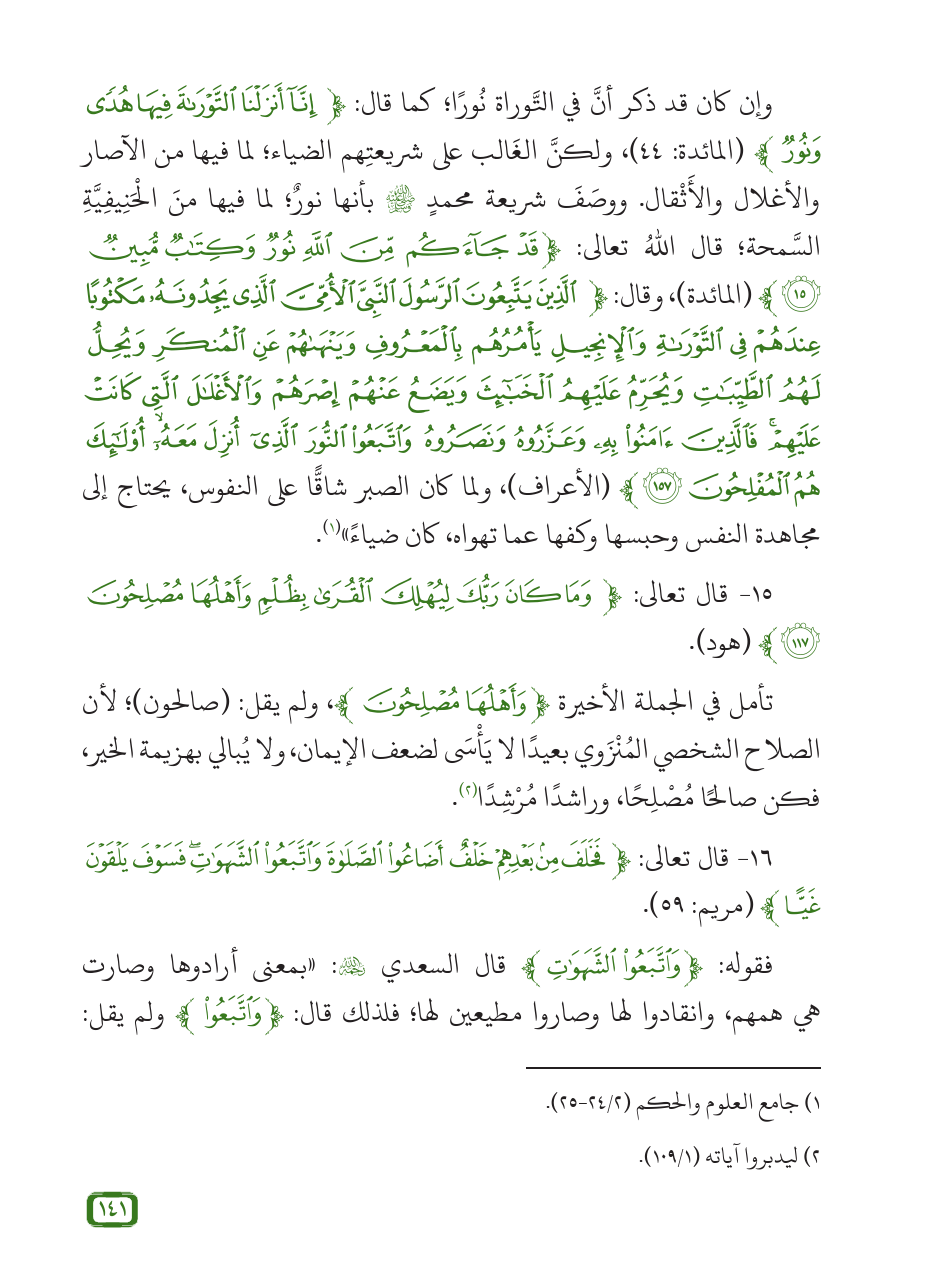 وإن كان قد ذكر أنَّ في التَّوراة نُورًا؛ كما قال: ﴿ إِنَّآ أَنزَلْنَا ٱلتَّوْرَىٰةَ فِيهَا هُدًى
وَنُورٌ ﴾ (المائدة: ٤٤)، ولكنَّ الغَالب على شريعتِهم الضياء؛ لما فيها من الآصار
والأغلال والأَثْقال. ووصَفَ شريعة محمدٍ ﷺ بأنها نورٌ؛ لما فيها منَ الْحَنِيفِيَّةِ
السَّمحة؛ قال اللهُ تعالى: ﴿ قَدْ جَآءَكُم مِّنَ ٱللَّهِ نُورٌ وَكِتَٰبٌ مُّبِينٌ
١٥ ﴾ (المائدة)، وقال: ﴿ ٱلَّذِينَ يَتَّبِعُونَ ٱلرَّسُولَ ٱلنَّبِىَّ ٱلْأُمِّىَّ ٱلَّذِى يَجِدُونَهُۥ مَكْتُوبًا
عِندَهُمْ فِى ٱلتَّوْرَىٰةِ وَٱلْإِنجِيلِ يَأْمُرُهُم بِٱلْمَعْرُوفِ وَيَنْهَىٰهُمْ عَنِ ٱلْمُنكَرِ وَيُحِلُّ
لَهُمُ ٱلطَّيِّبَٰتِ وَيُحَرِّمُ عَلَيْهِمُ ٱلْخَبَٰٓئِثَ وَيَضَعُ عَنْهُمْ إِصْرَهُمْ وَٱلْأَغْلَٰلَ ٱلَّتِى كَانَتْ
عَلَيْهِمْ ۚ فَٱلَّذِينَ ءَامَنُوا۟ بِهِۦ وَعَزَّرُوهُ وَنَصَرُوهُ وَٱتَّبَعُوا۟ ٱلنُّورَ ٱلَّذِىٓ أُنزِلَ مَعَهُۥٓ ۙ أُو۟لَٰٓئِكَ
هُمُ ٱلْمُفْلِحُونَ ١٥٧ ﴾ (الأعراف)، ولما كان الصبر شاقًّا على النفوس، يحتاج إلى
مجاهدة النفس وحبسها وكفها عما تهواه، كان ضياءً»(١).
١٥- قال تعالى: ﴿ وَمَا كَانَ رَبُّكَ لِيُهْلِكَ ٱلْقُرَىٰ بِظُلْمٍ وَأَهْلُهَا مُصْلِحُونَ
١١٧ ﴾ (هود).
تأمل في الجملة الأخيرة ﴿ وَأَهْلُهَا مُصْلِحُونَ ﴾، ولم يقل: (صالحون)؛ لأن
الصلاح الشخصي المُنْزَوي بعيدًا لا يَأْسَى لضعف الإيمان، ولا يُبالي بهزيمة الخير،
فكن صالحًا مُصْلِحًا، وراشدًا مُرْشِدًا(٢).
١٦- قال تعالى: ﴿ فَخَلَفَ مِنۢ بَعْدِهِمْ خَلْفٌ أَضَاعُوا۟ ٱلصَّلَوٰةَ وَٱتَّبَعُوا۟ ٱلشَّهَوَٰتِ ۖ فَسَوْفَ يَلْقَوْنَ
غَيًّا ﴾ (مريم: ٥٩).
فقوله: ﴿ وَٱتَّبَعُوا۟ ٱلشَّهَوَٰتِ ﴾ قال السعدي رحمه الله: «بمعنى أرادوها وصارت
هي همهم، وانقادوا لها وصاروا مطيعين لها؛ فلذلك قال: ﴿ وَٱتَّبَعُوا۟ ﴾ ولم يقل:
١) جامع العلوم والحكم (٢/ ٢٤-٢٥).
٢) ليدبروا آياته (١/ ١٠٩).
١٤١